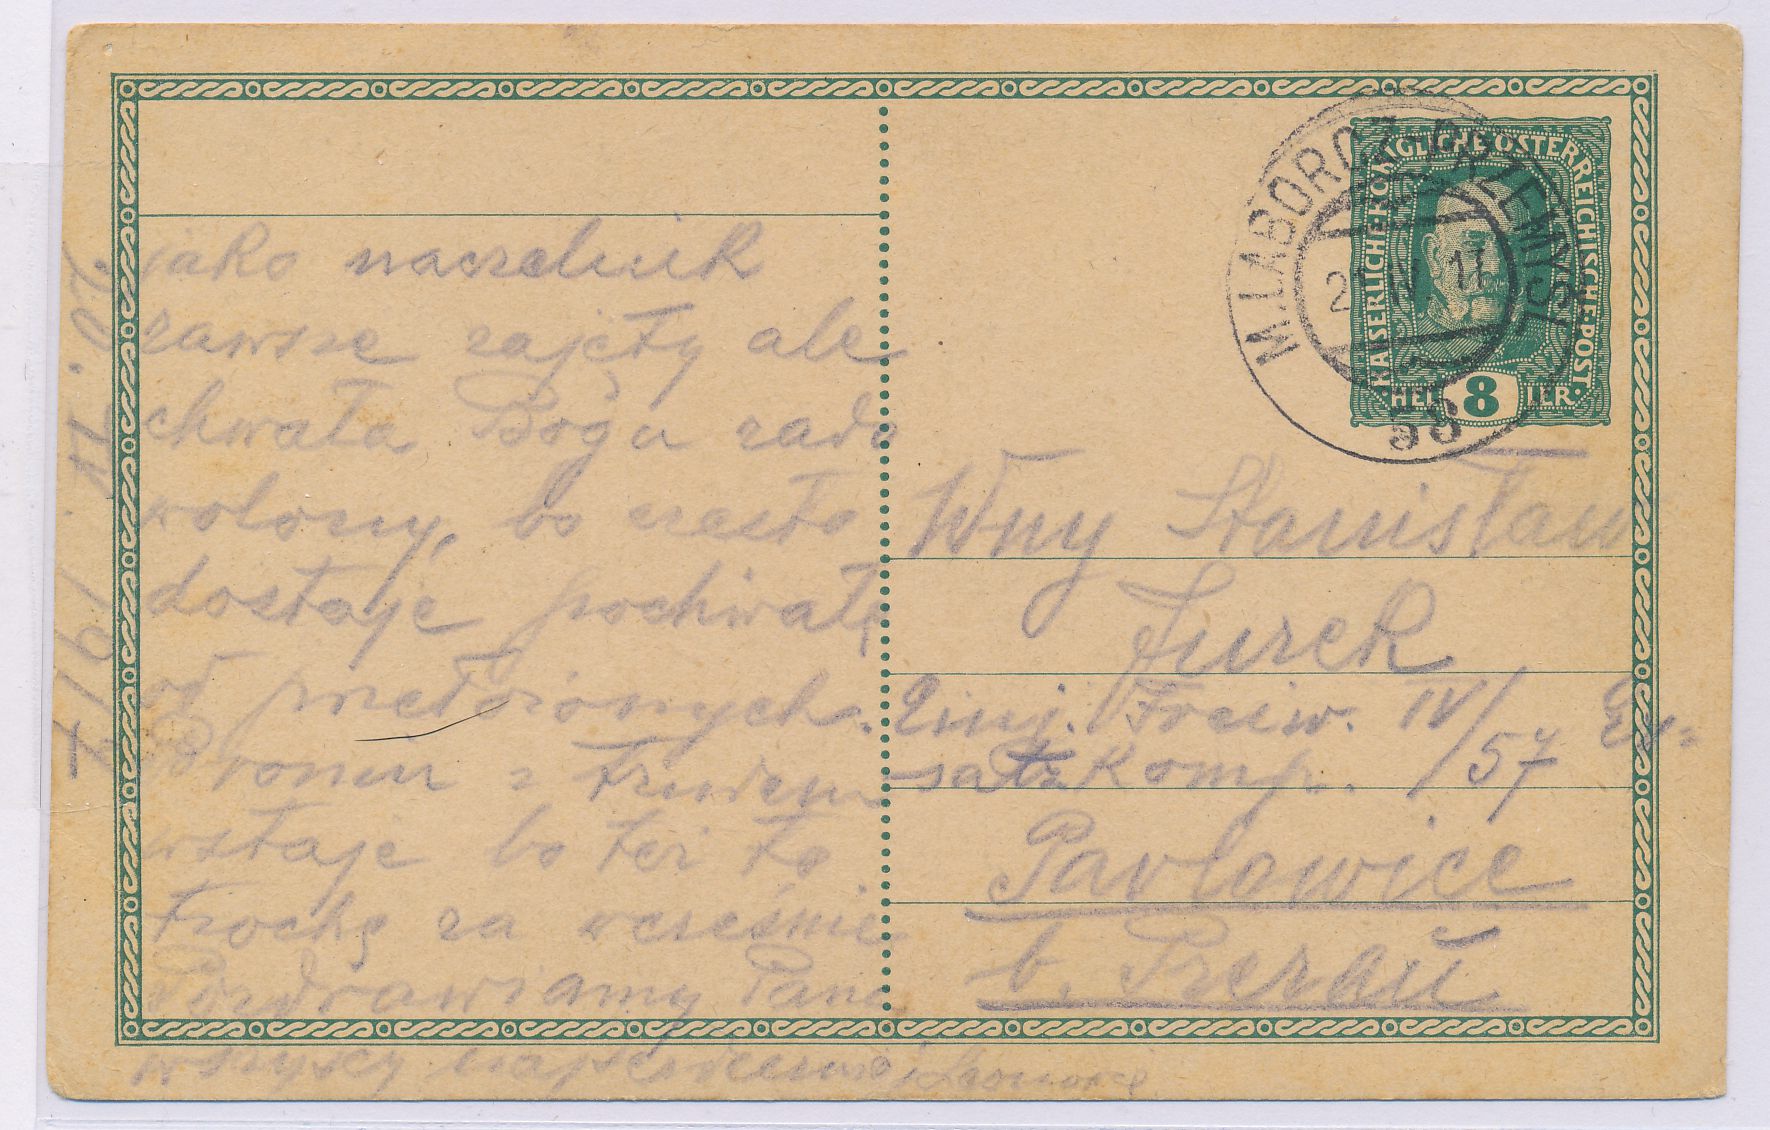 jako naczelnik
zawsze zajęty ale
chwała Bogu zado
wolony, bo często
dostaje pochwałę
od przełożonych.
z trudem
wstaje bo też to
trochę za wcześnie
Pozdrawiamy Pana
wszyscy najserdeczniej
KAISERLICHE·KÖNIGLICHE·ÖSTERREICHISCHE·POST·
HELLER 8
M.LABORCZ-PRZEMYŚL
IV 1
58
Wny Stanisław
Jurek
Einj. Freiw. IV/57 Er-
satzkomp.
Pavlowice
b. Prerau